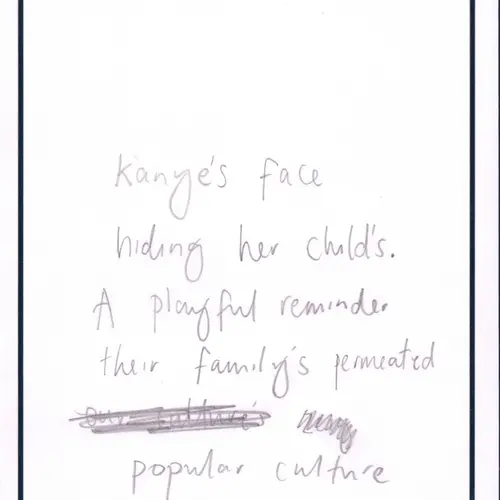 Kanye's face
hiding her child's.
A playful reminder
their family's permeated
popular culture